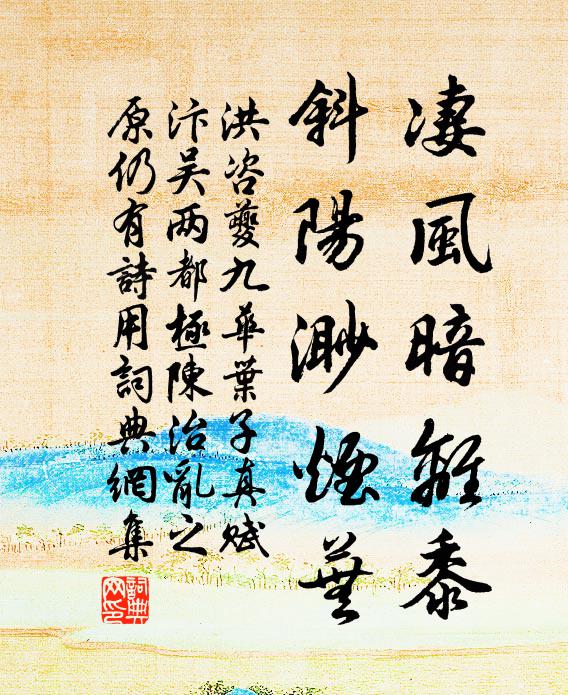 凄風暗離黍
斜陽渺煙蕪
洪咨夔九華葉子真賦
汴吴两都極陳治亂之
原仍有詩用詞典網集
詞典
网印